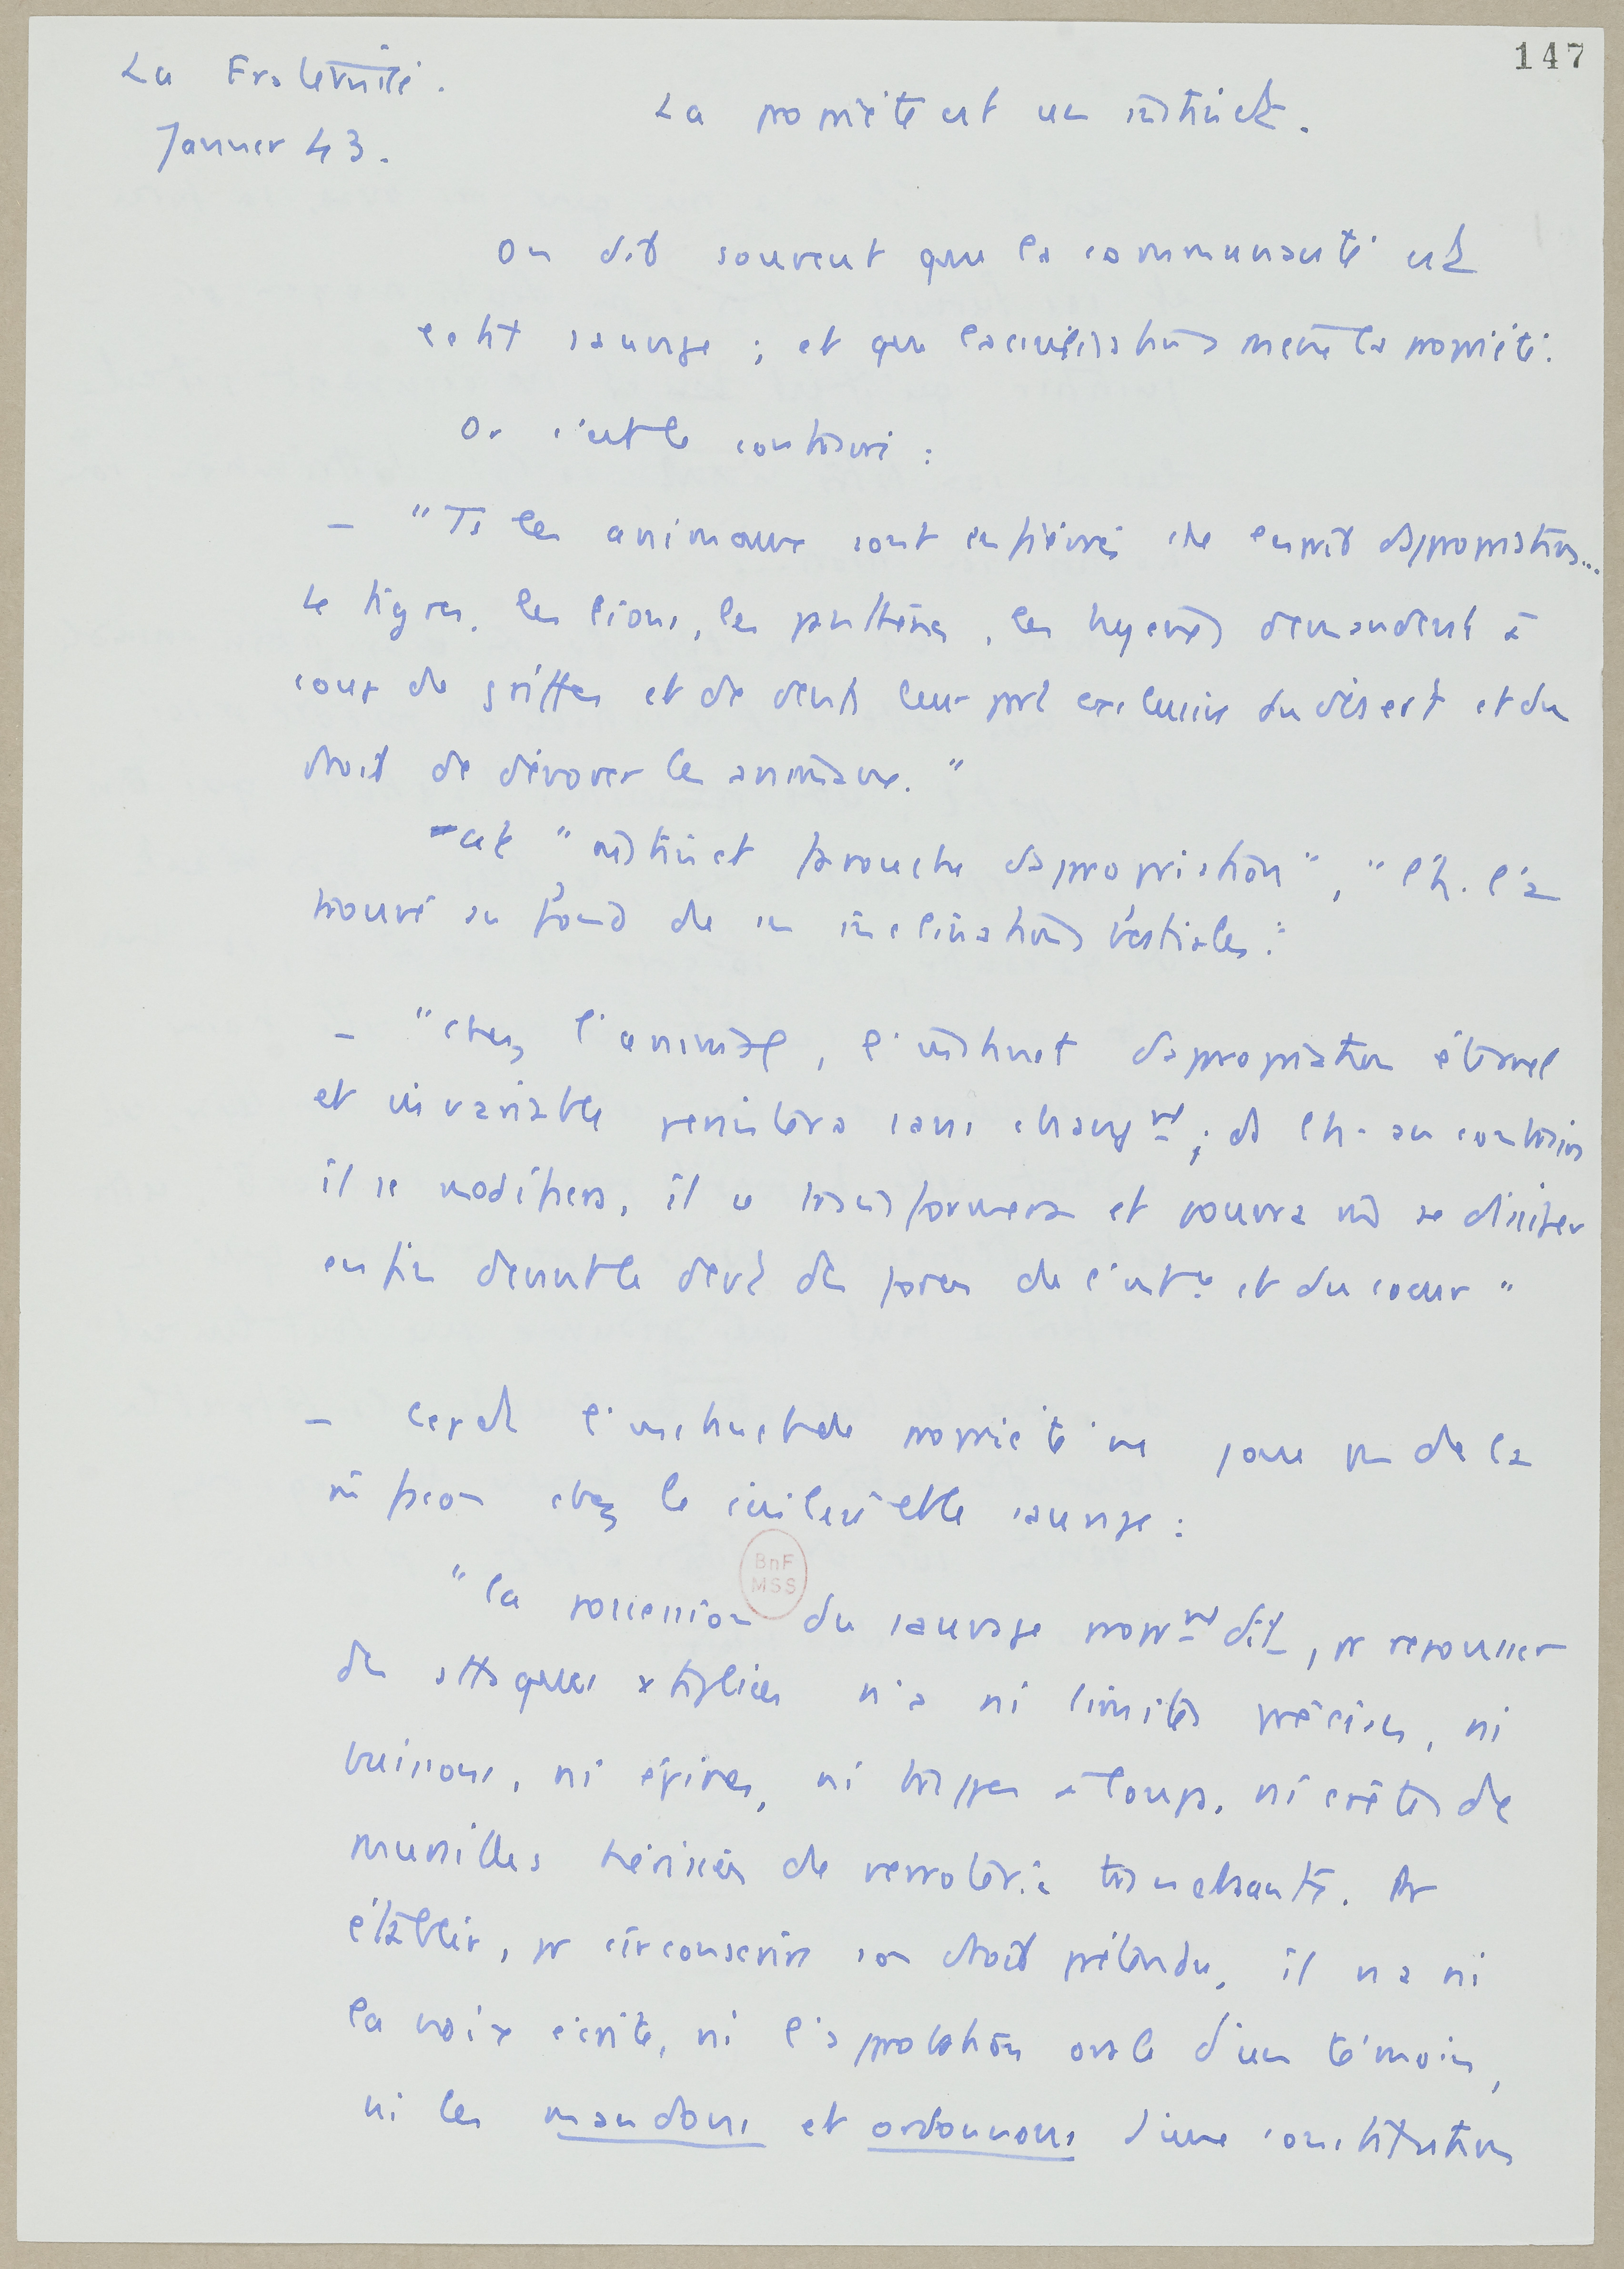 147
La Fraternité.
Janvier 43.
La propriété est un instinct.
On dit souvent que la communauté est
état sauvage ; et que la civilisation mène la propriété.
Or c'est le contraire :
– "Ts les animaux sont enfiévrés de esprit d'appropriation...
Le tigres, les lions, les panthères, les hyènes demandent à
coups de griffes et de dents leur exclusive du désert et du
droit de dévorer les animaux."
cet "instinct farouche d'appropriation", "l'h. l'a
trouvé au fond de ses inclinations bestiales."
– "chez l'animal, l'instinct d'appropriation éternel
et invariable persistera sans changmt ; ds l'h. au contraire
il se modifiera, il se transformera et pourra se
enfin devant le des forces de l'int. et du coeur"
– l'instinct de propriété ne joue pas de la
m façon chez le civilisé et le sauvage :
"la possession du sauvage proprmt dit, pr repousser
des attaques n'a ni limites précises, ni
buissons, ni épines, ni trappes à loups, ni crêtes de
murailles hérissées de verroterie tranchante. Pr
établir, pr circonscrire son droit prétendu, il n'a ni
la voix écrite, ni l'approbation orale d'un témoin,
ni les mandons et ordonnons d'une constitution
BnF
MSS